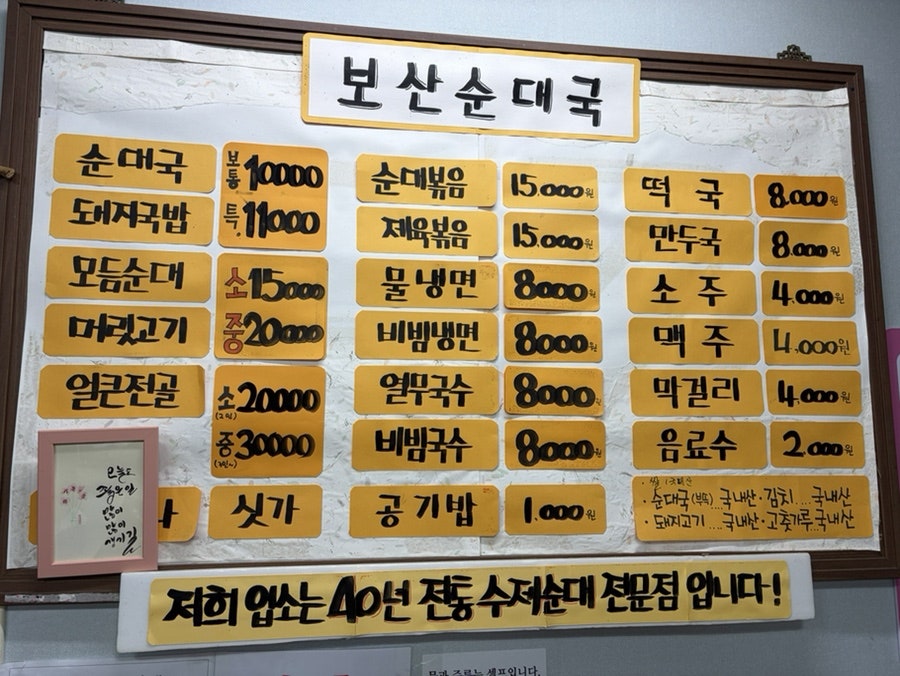 보산순대국
순대국
돼지국밥
보통 10000
특 11000
모듬순대
머릿고기
소 15000
중 20000
얼큰전골
소 20000
(2인)
중 30000
싯가
순대볶음 15.000원
제육볶음 15.000원
물냉면 8000원
비빔냉면 8000원
열무국수 8000원
비빔국수 8000원
공기밥 1.000원
떡국 8.000원
만두국 8.000원
소주 4.000원
맥주 4.000원
막걸리 4.000원
음료수 2.000원
·순대국(부속) 국내산·김치...국내산
·돼지고기...국내산·고춧가루국내산
오늘도
좋은일
많이
많이
생기길
저희 업소는 40년 전통 수제순대 전문점 입니다!